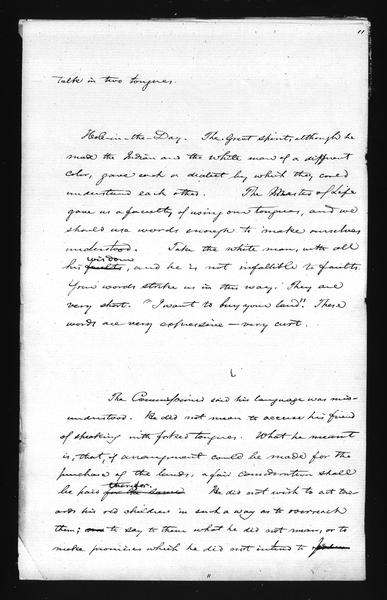 11
talk in two tongues.
Hole-in-the-Day. The Great Spirit, although he
made the Indian and the white man of a different
color, gave each a dialect by which they could
understand each other. The Master of Life
gave us a faculty of using our tongues, and we
should use words enough to make ourselves
understood. Take the white man, with all
wisdom
his faults, and he is not infallible to faults.
Your words strike us in this way. They are
very short. "I want to buy your land". These
words are very expressive — very curt.
The Commissioner said his language was mis-
understood. He did not mean to accuse his friend
of speaking with forked tongues. What he meant
is, that, if arrangement could be made for the
purchase of the lands, a fair consideration shall
therefor.
be paid for the same He did not wish to act tow-
ards his old children in such a way as to overreach
them; to say to them what he did not mean, or to
make promises which he did not intend to
11